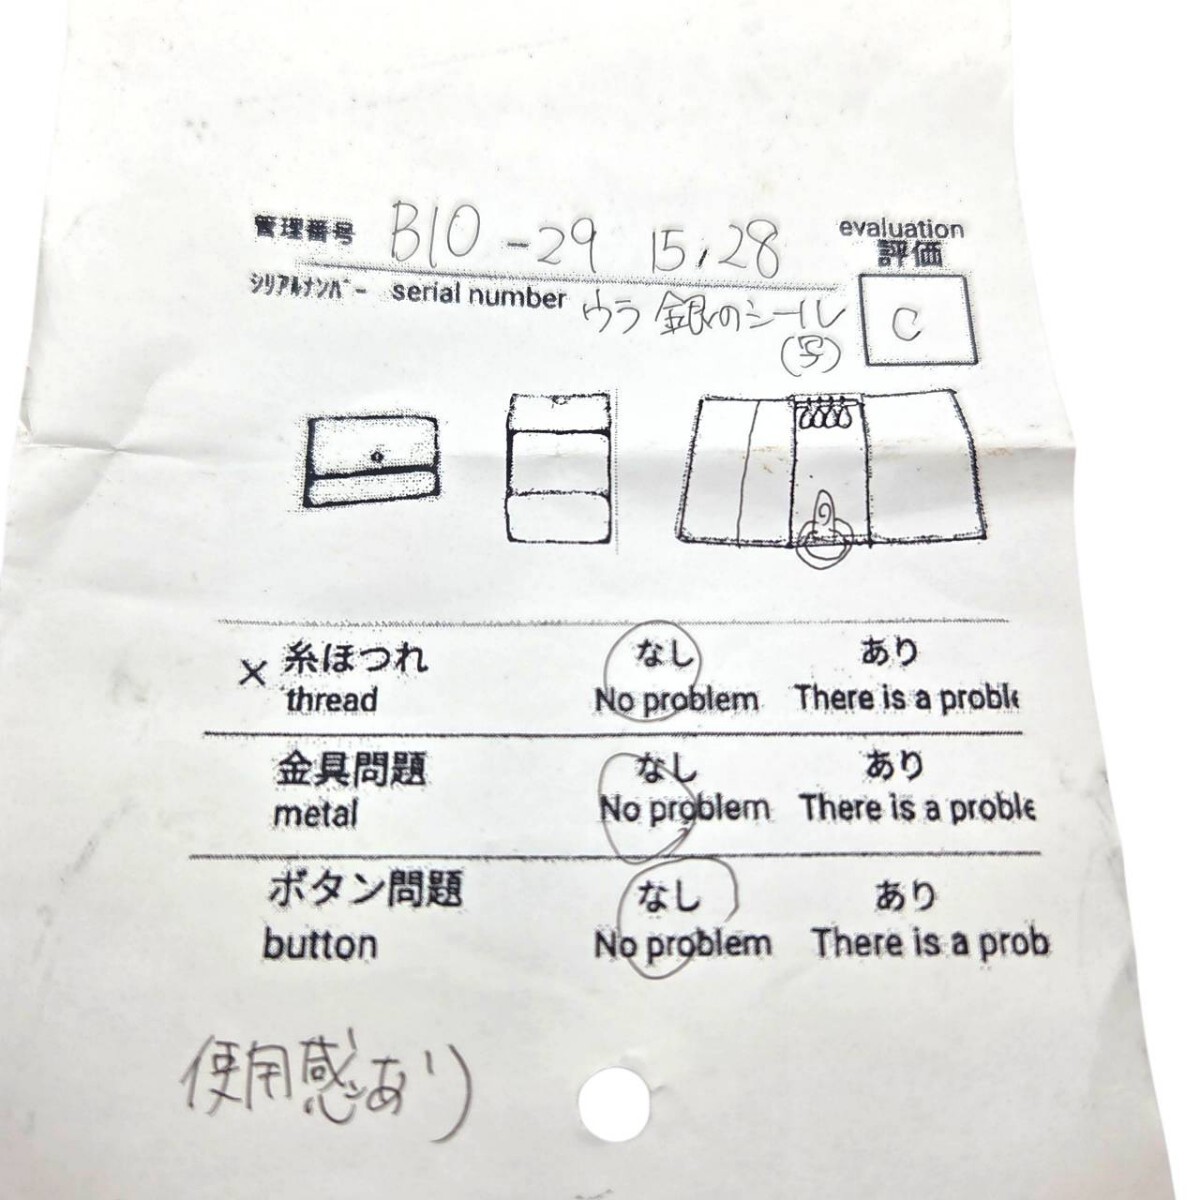 管理番号 B10-29 15,28
evaluation
評価
シリアルナンバー serial number ウラ 銀のシール
(写)
C
× 糸ほつれ なし あり
thread No problem There is a proble
金具問題 なし あり
metal No problem There is a proble
ボタン問題 なし あり
button No problem There is a prob
使用感あり